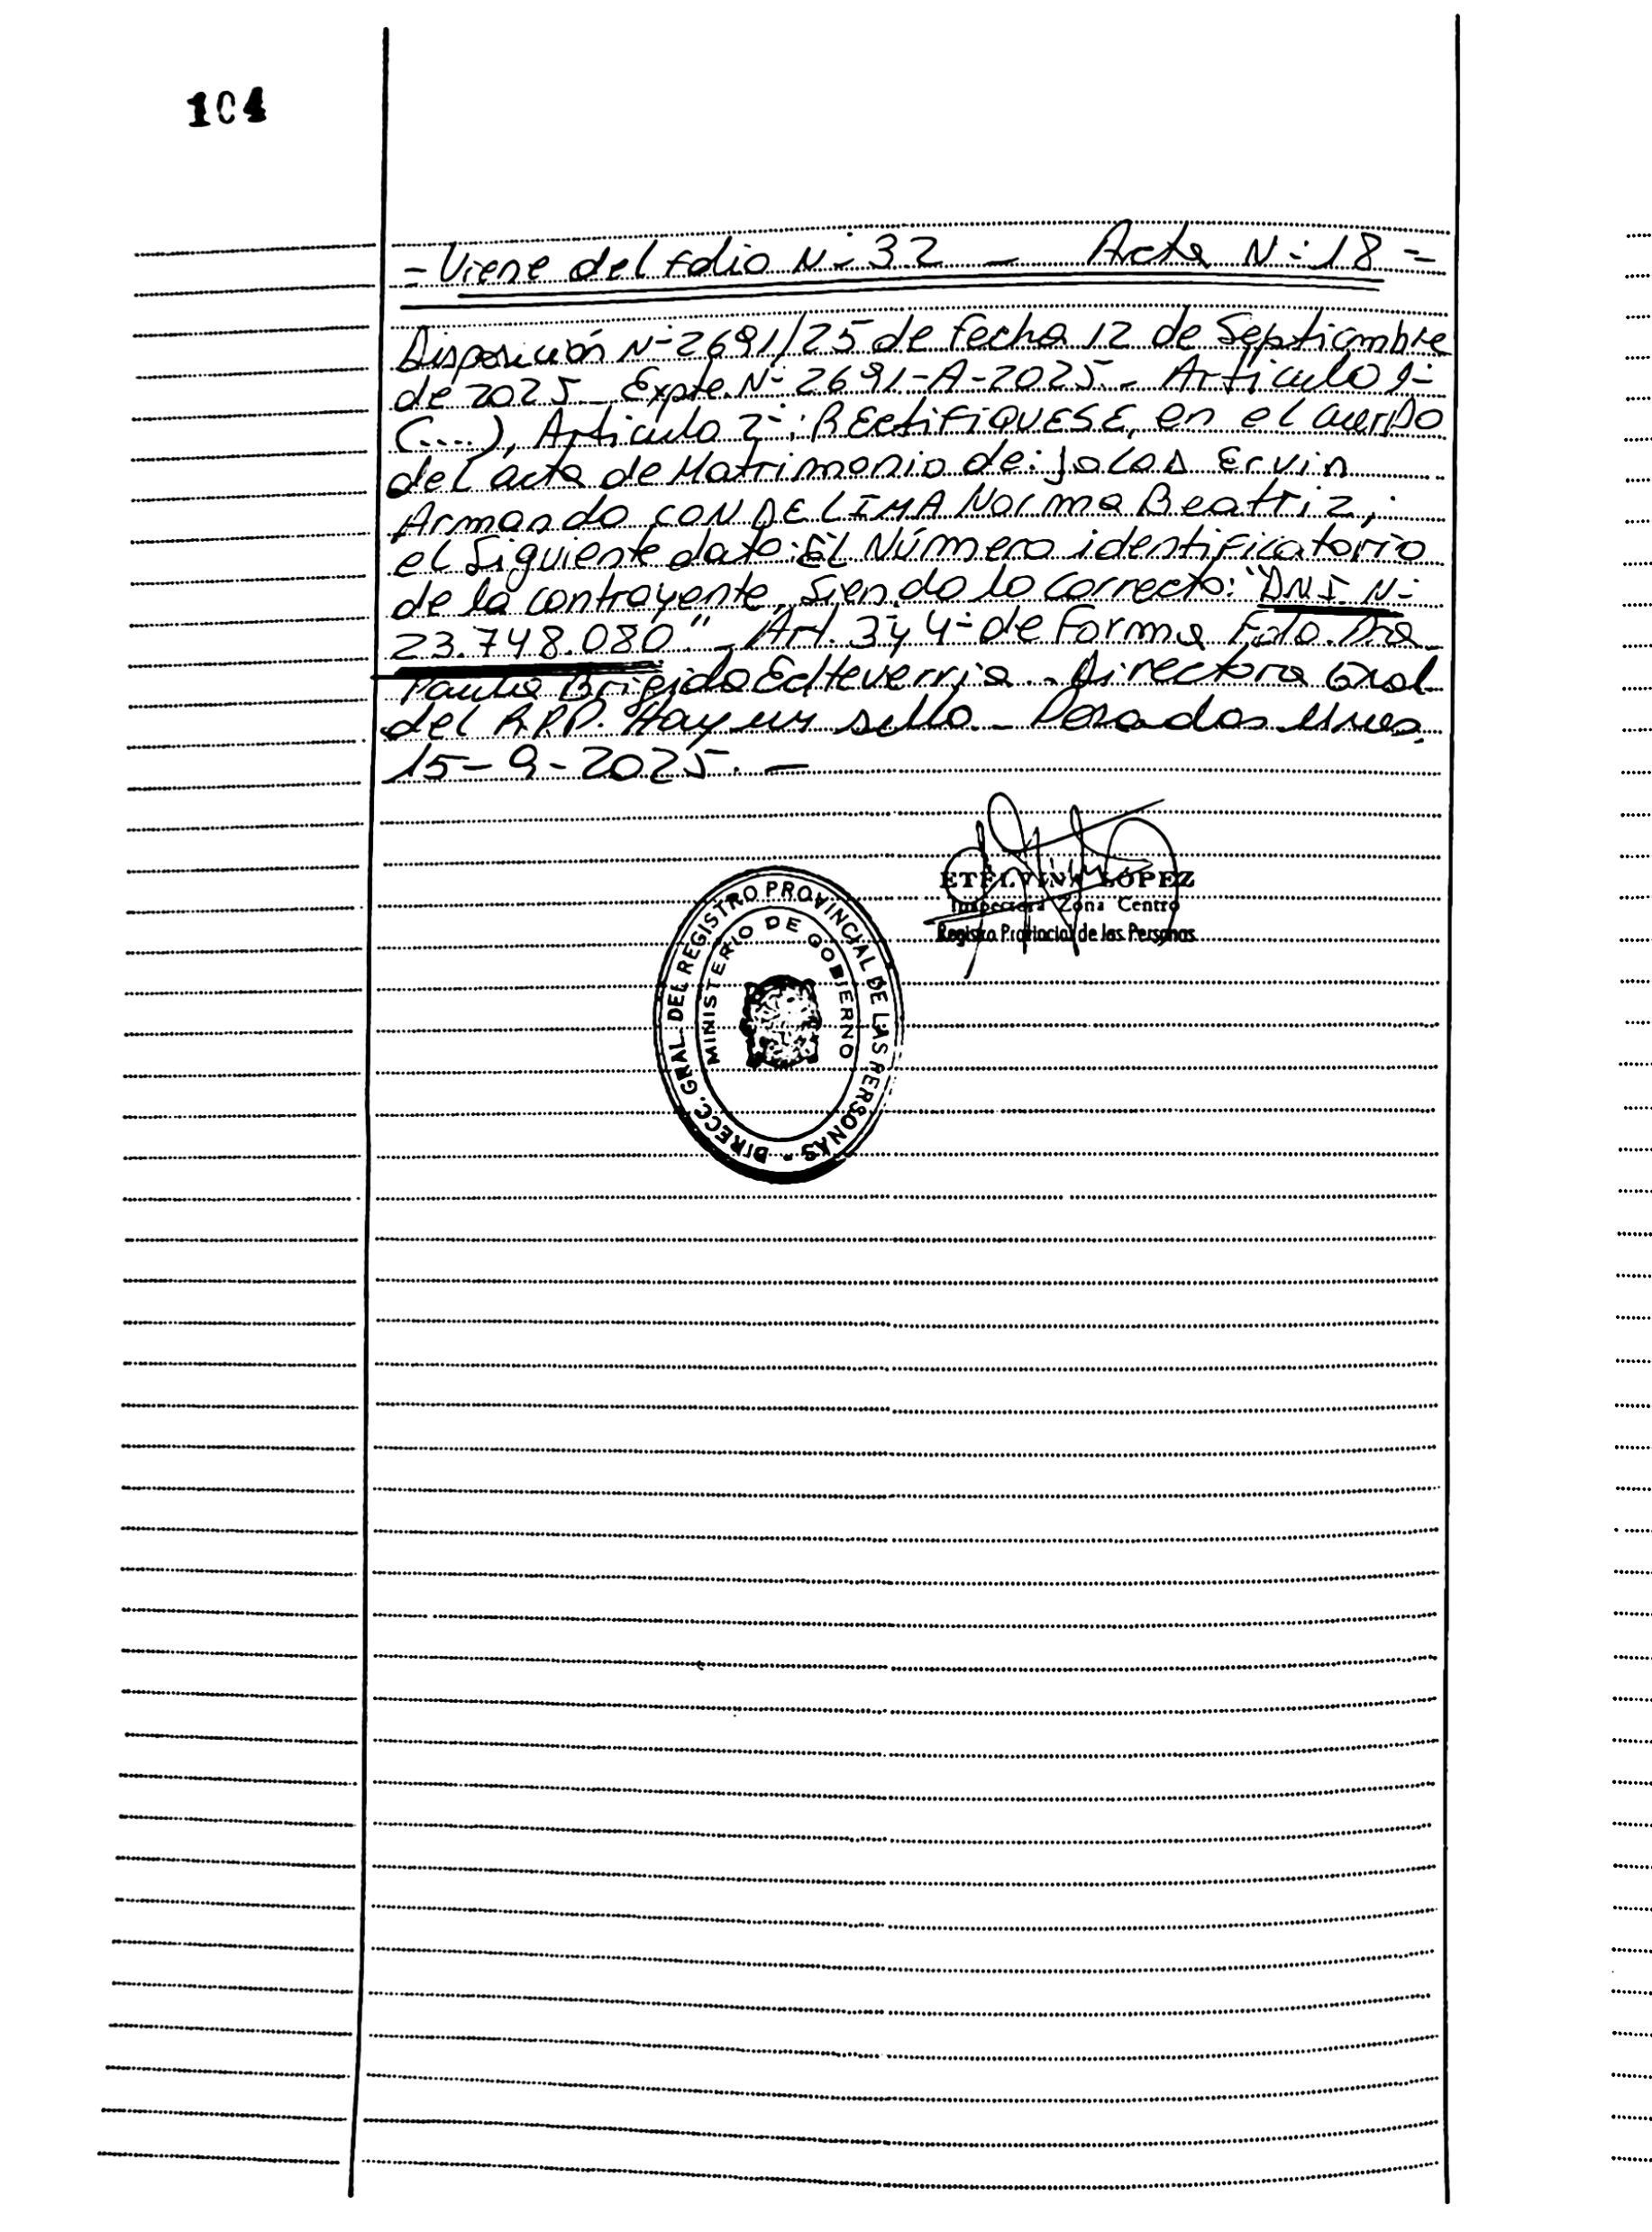 104
- Viene del folio N- 32 - Acta N- 18 -
Disposición N- 2691/25 de fecha 12 de Septiembre
de 2025 - Expte. N- 2691-A-2025 - Articulo 1-
(....), Articulo 2-: RECtiFiQUESE, en el cuerpo
del acta de Matrimonio de: Ervin
Armando CON DE LIMA Norma Beatriz;
el Siguiente dato: El Número identificatorio
de la contrayente, Siendo lo correcto: "DNI. N-
23.748.080" - Art. 3- y 4- de Forma Fdo. Dra
Paula Brigida Echeverria - Directora Gral
del R.P.P. Hay un sello - Posadas Mnes.
15-9-2025. -
ETELVINA LOPEZ
Inspectora Zona Centro
Registro Provincial de las Personas
DIRECC. GRAL. DEL REGISTRO PROVINCIAL DE LAS PERSONAS -
MINISTERIO DE GOBIERNO